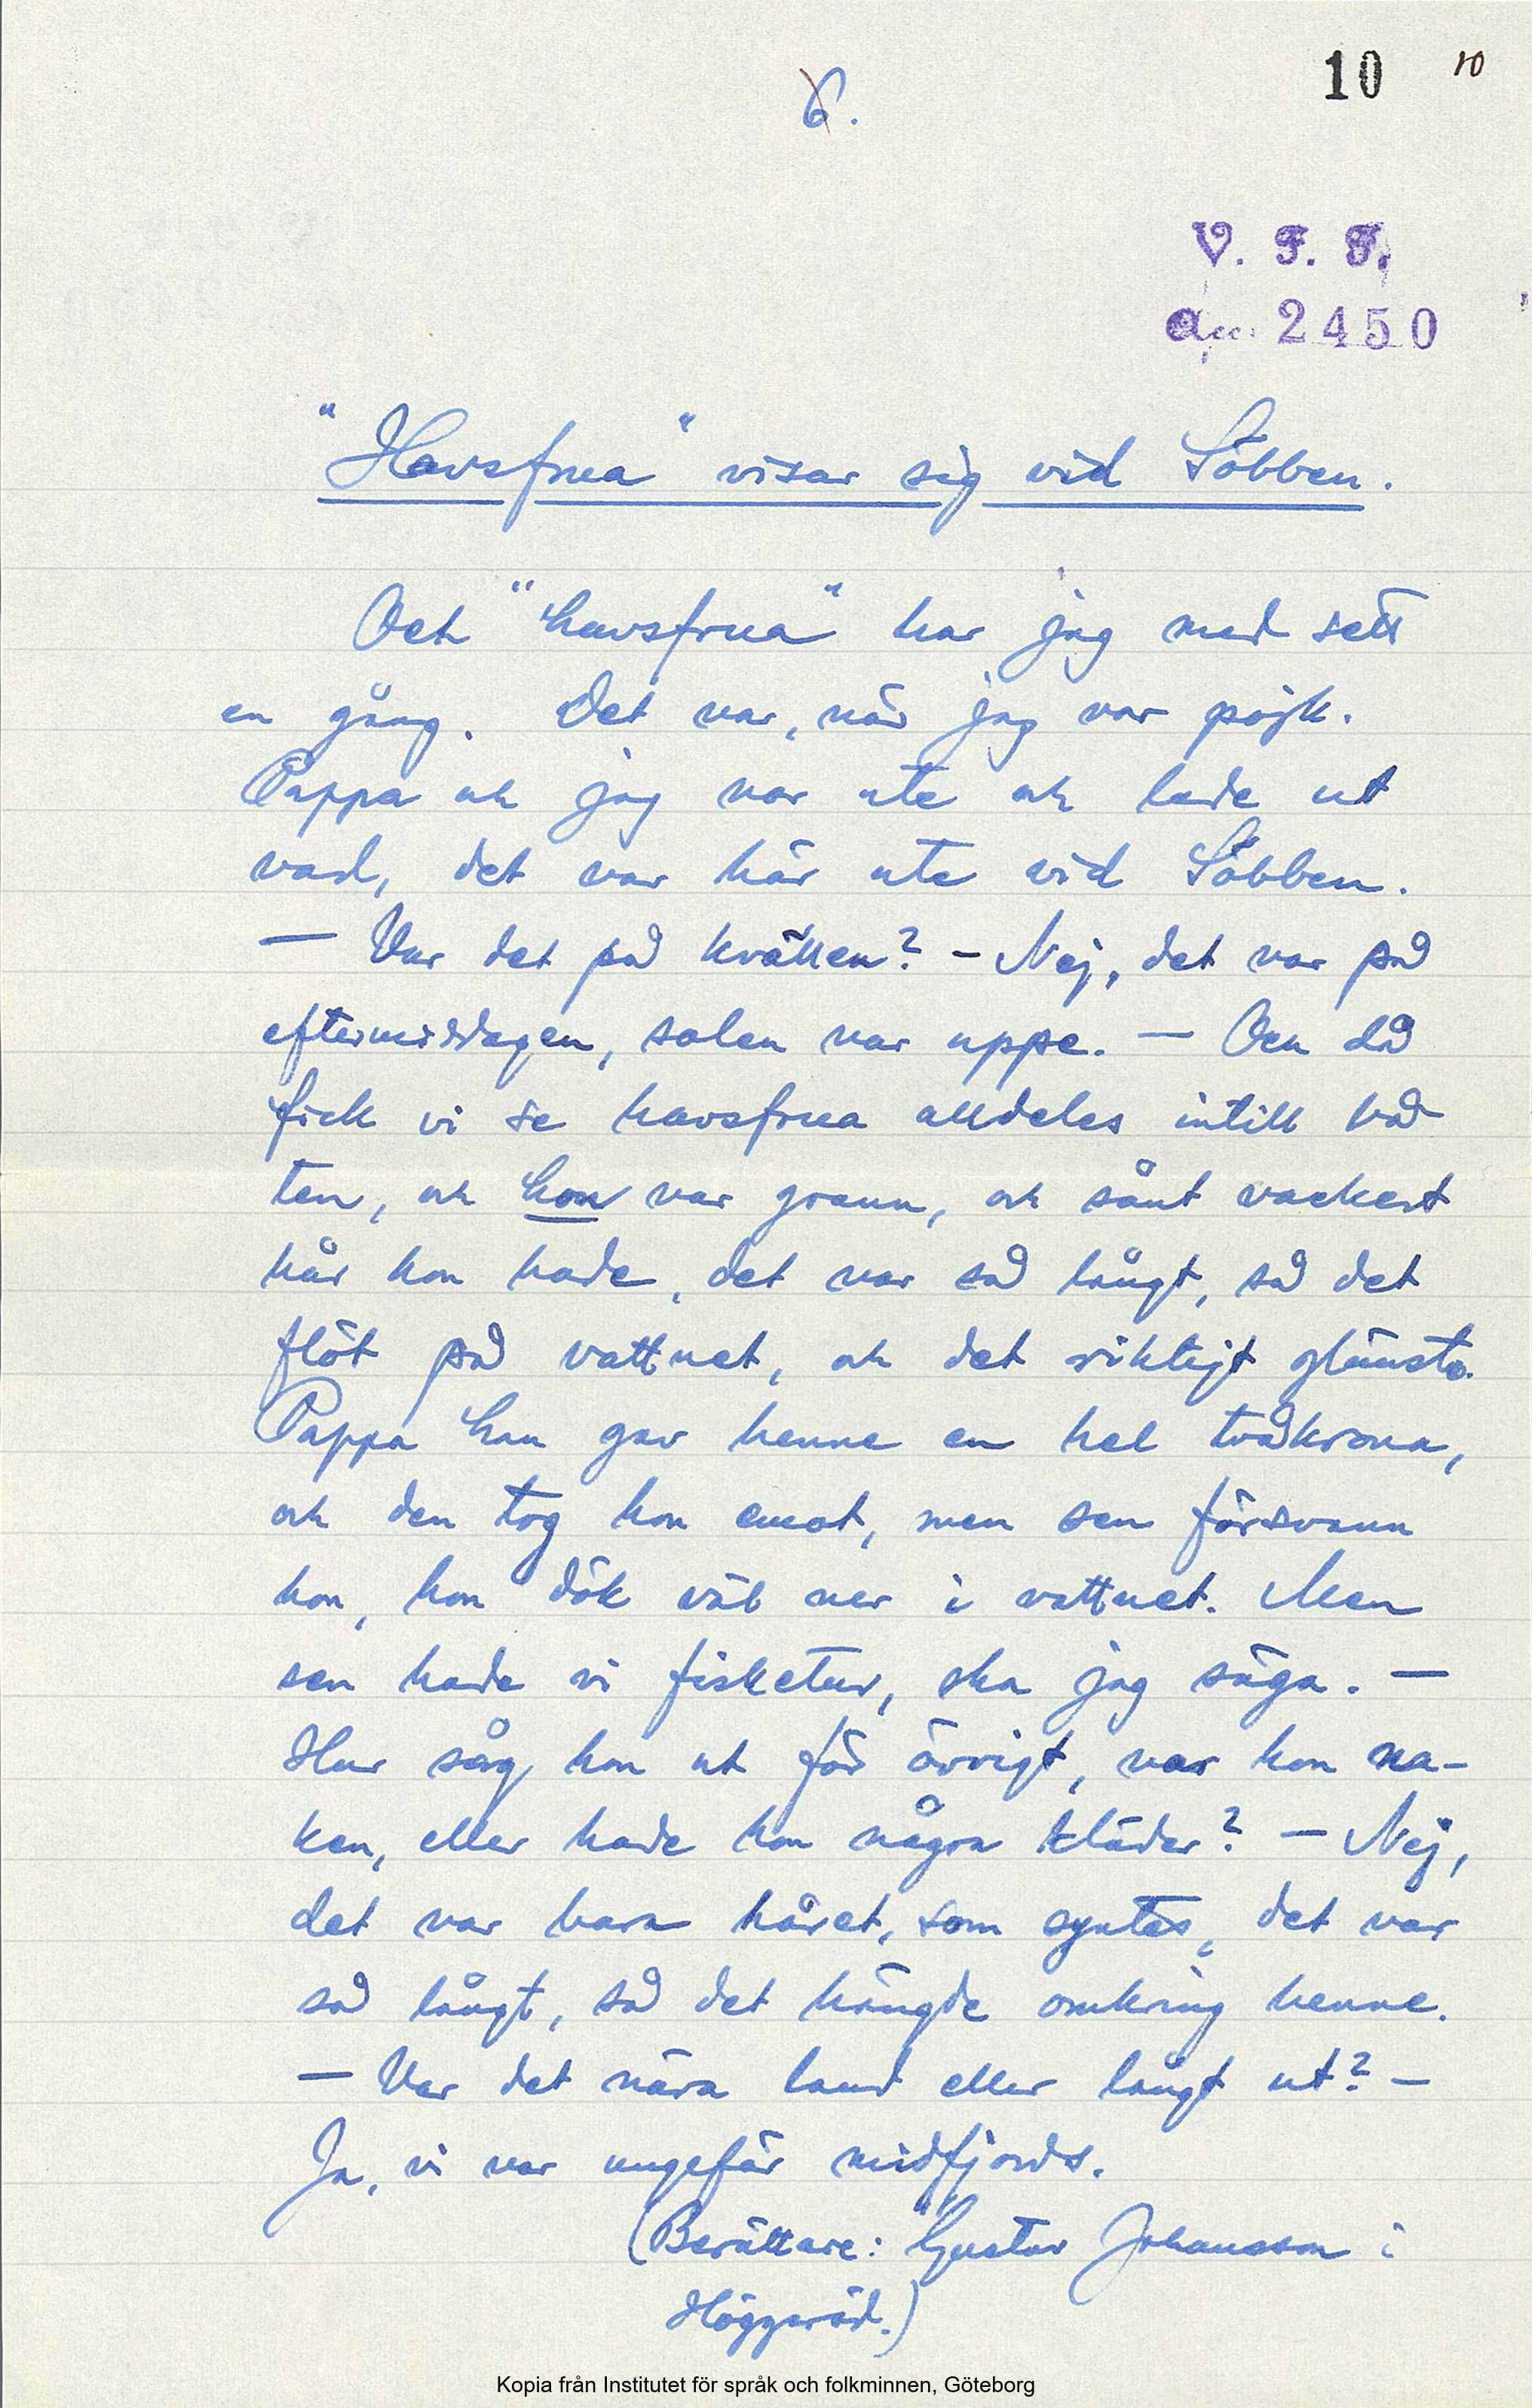 10 10
6.
V. F. F.
acc. 2450
"Havsfrua" visar sig vid Söbben.
Och "havsfrua" har jag med sett
en gång. Det var, när jag var pojk.
Pappa och jag var ute och lade ut
vad, det var här ute vid Söbben.
— Var det på kvällen? – Nej, det var på
eftermiddagen, solen var uppe. — Och då
fick vi se havsfrua alldeles intill bå
ten, och hon var grann, och sånt vackert
hår hon hade, det var så långt, så det
flöt på vattnet, och det riktigt glänste.
Pappa han gav henne en hel tvåkrona,
och den tog hon emot, men sen försvann
hon, hon dök väl ner i vattnet. Men
sen hade vi fisketur, ska jag säga. —
Hur såg hon ut för övrigt, var hon na-
ken, eller hade hon några kläder? — Nej,
det var bara håret, som syntes, det var
så långt, så det hängde omkring henne.
— Var det nära land eller långt ut? –
Ja, vi var ungefär midfjords.
(Berättare: Gustav Johansson i
Höggeröd.)
Kopia från Institutet för språk och folkminnen, Göteborg